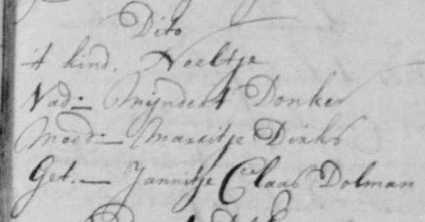 Dito
't kind. Neeltje
Vad:– Mÿndert Donker
Moed:– Marritje Dirks
Get.– Jannitje Claas Dolman